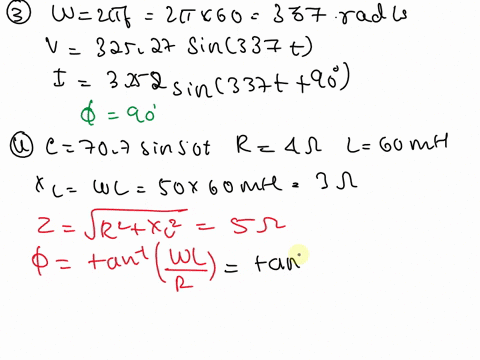 ③ W = 2πf = 2π×60 = 337 rad/s
V = 325.27 sin(337t)
I = 3.252 sin(337t + 90°)
ϕ = 90°
④ e = 70.7 sin 50t R = 4Ω L = 60mH
X_L = WL = 50×60mH = 3Ω
Z = √(R²+X_L²) = 5Ω
ϕ = tan⁻¹(WL/R) = tan